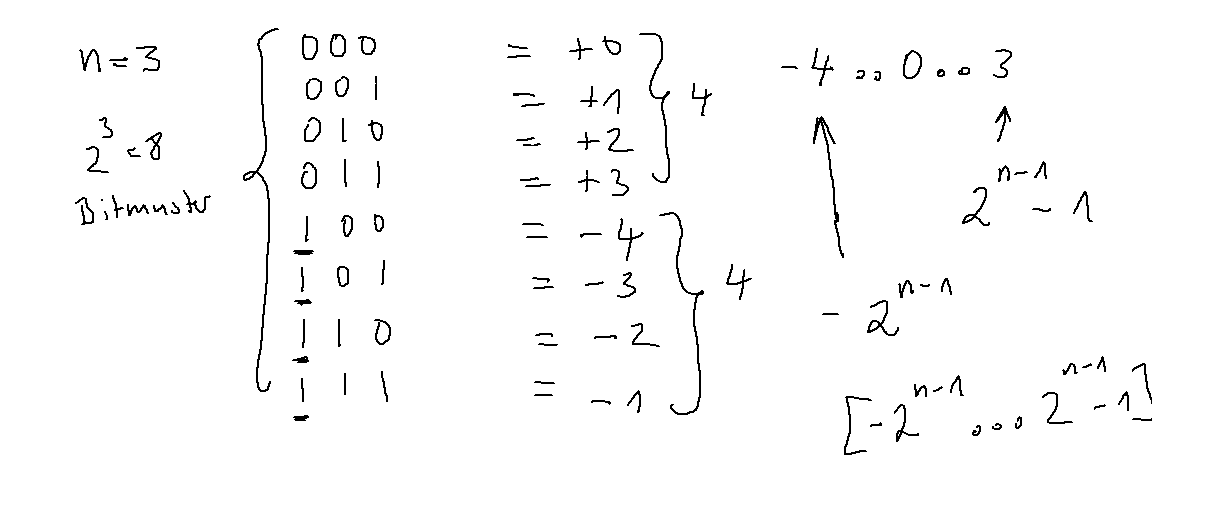 n=3
2³=8
Bitmuster
0 0 0 = +0
0 0 1 = +1
0 1 0 = +2
0 1 1 = +3
4
1 0 0 = -4
1 0 1 = -3
1 1 0 = -2
1 1 1 = -1
4
-4..0..3
2^{n-1} - 1
-2^{n-1}
[-2^{n-1} ... 2^{n-1} - 1]